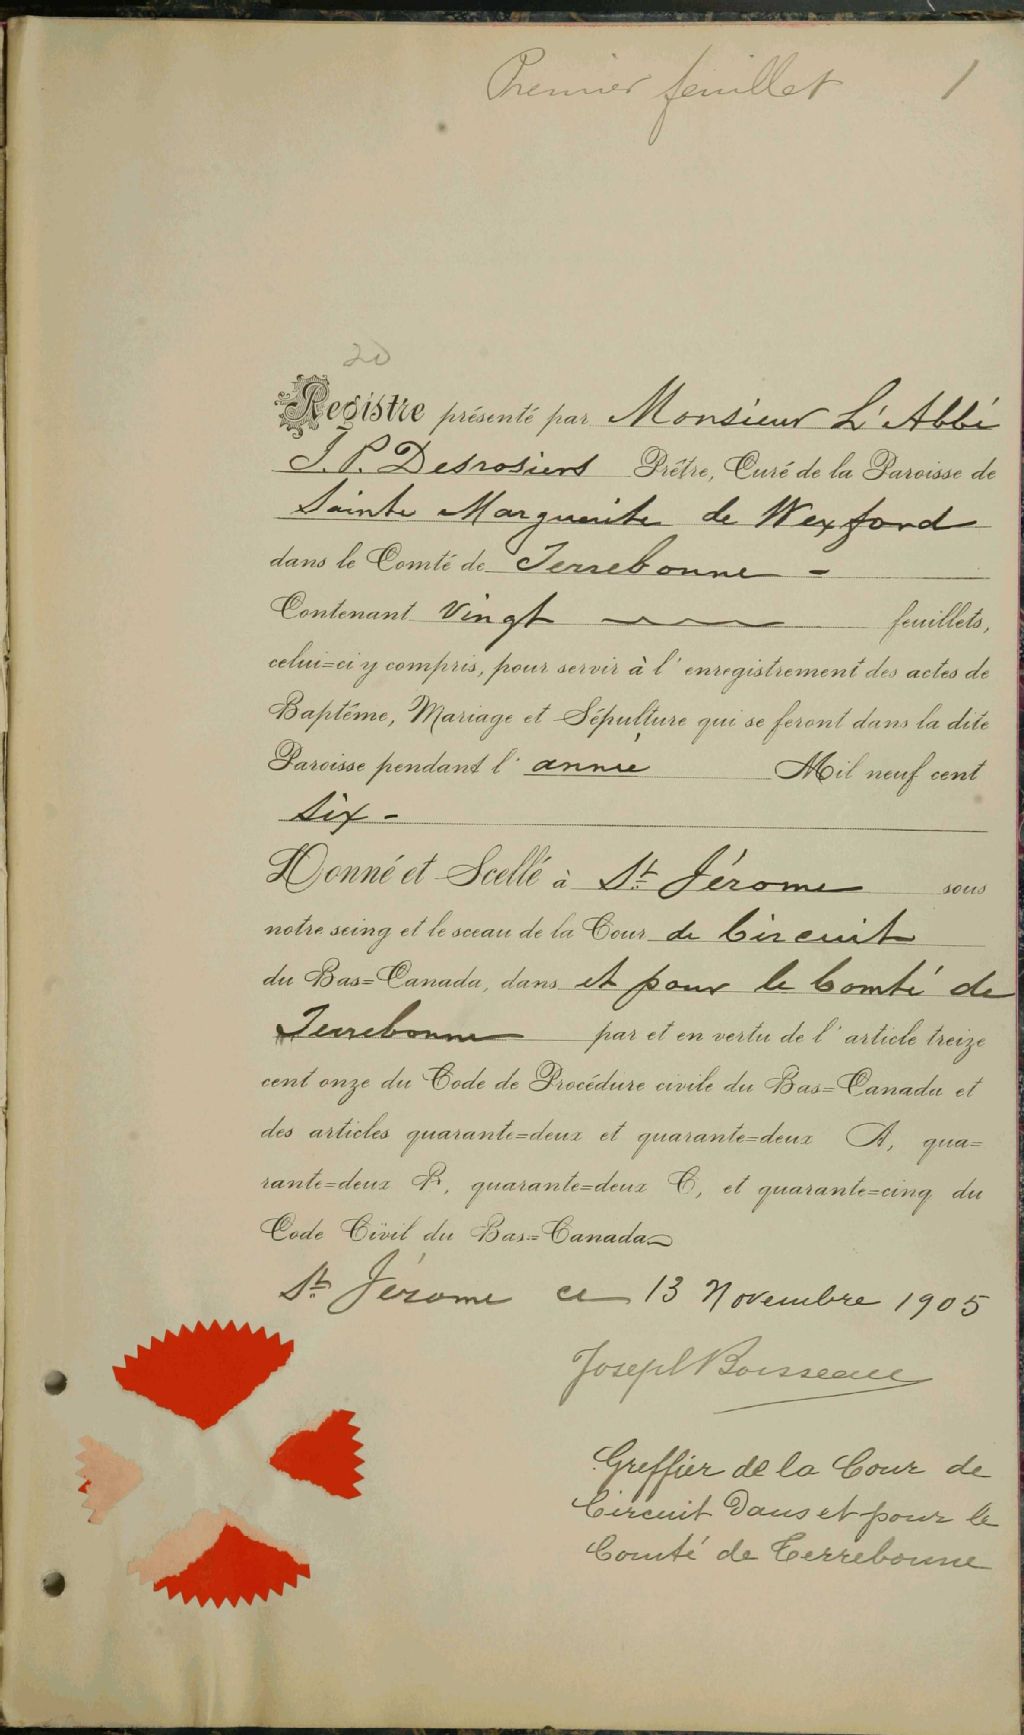 Premier feuillet 1
20
Registre présenté par Monsieur L'Abbé
J. P. Desrosiers Prêtre, Curé de la Paroisse de
Sainte Marguerite de Wexford
dans le Comté de Terrebonne -
Contenant vingt feuillets,
celui=ci y compris, pour servir à l'enregistrement des actes de
Baptême, Mariage et Sépulture qui se feront dans la dite
Paroisse pendant l'année Mil neuf cent
six -
Donné et Scellé à St. Jérome sous
notre seing et le sceau de la Cour de Circuit
du Bas=Canada, dans et pour le Comté de
Terrebonne par et en vertu de l'article treize
cent onze du Code de Procédure civile du Bas=Canada et
des articles quarante=deux et quarante=deux A, qua=
rante=deux B, quarante=deux C, et quarante=cinq du
Code Civil du Bas=Canada.
St. Jérome ce 13 Novembre 1905
Joseph Boisseau
Greffier de la Cour de
Circuit Dans et pour le
Comté de Terrebonne